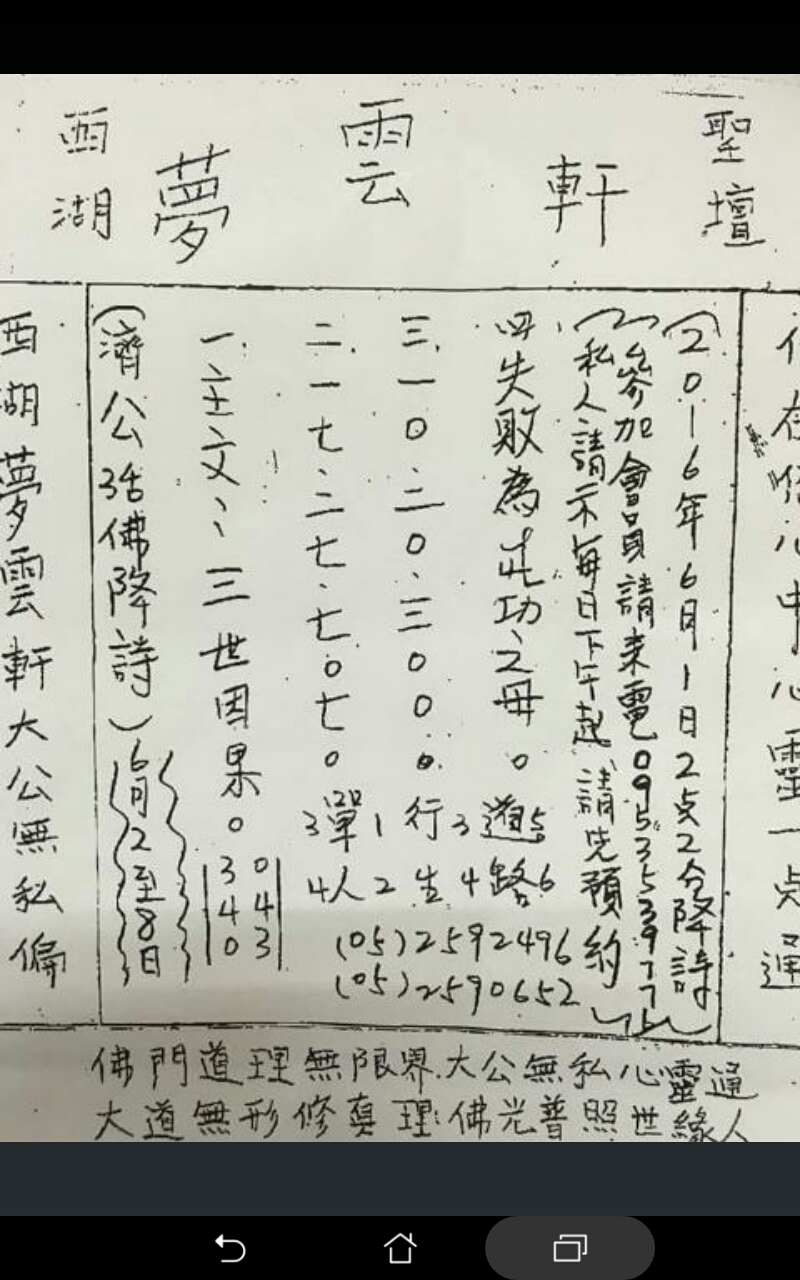 聖壇
軒
雲
夢
西湖
存 心中心靈一点通
(2016年6月1日2点2分降詩)
參加會員請來電095353977
私人請示每日下午起請先預約
四.失敗為成功之母。
遊路 5 6
三.一0.二0.三00。
行生 3 4
二.一七.二七.七0七。
單人 1 2
3 4
(05)2592496
(05)2590652
一.主文:三世因果。
043
340
(濟公活佛降詩)
6月2至8日
西湖夢雲軒大公無私偏
佛門道理無限界.大公無私心靈通
大道無形修真理:佛光普照世緣人